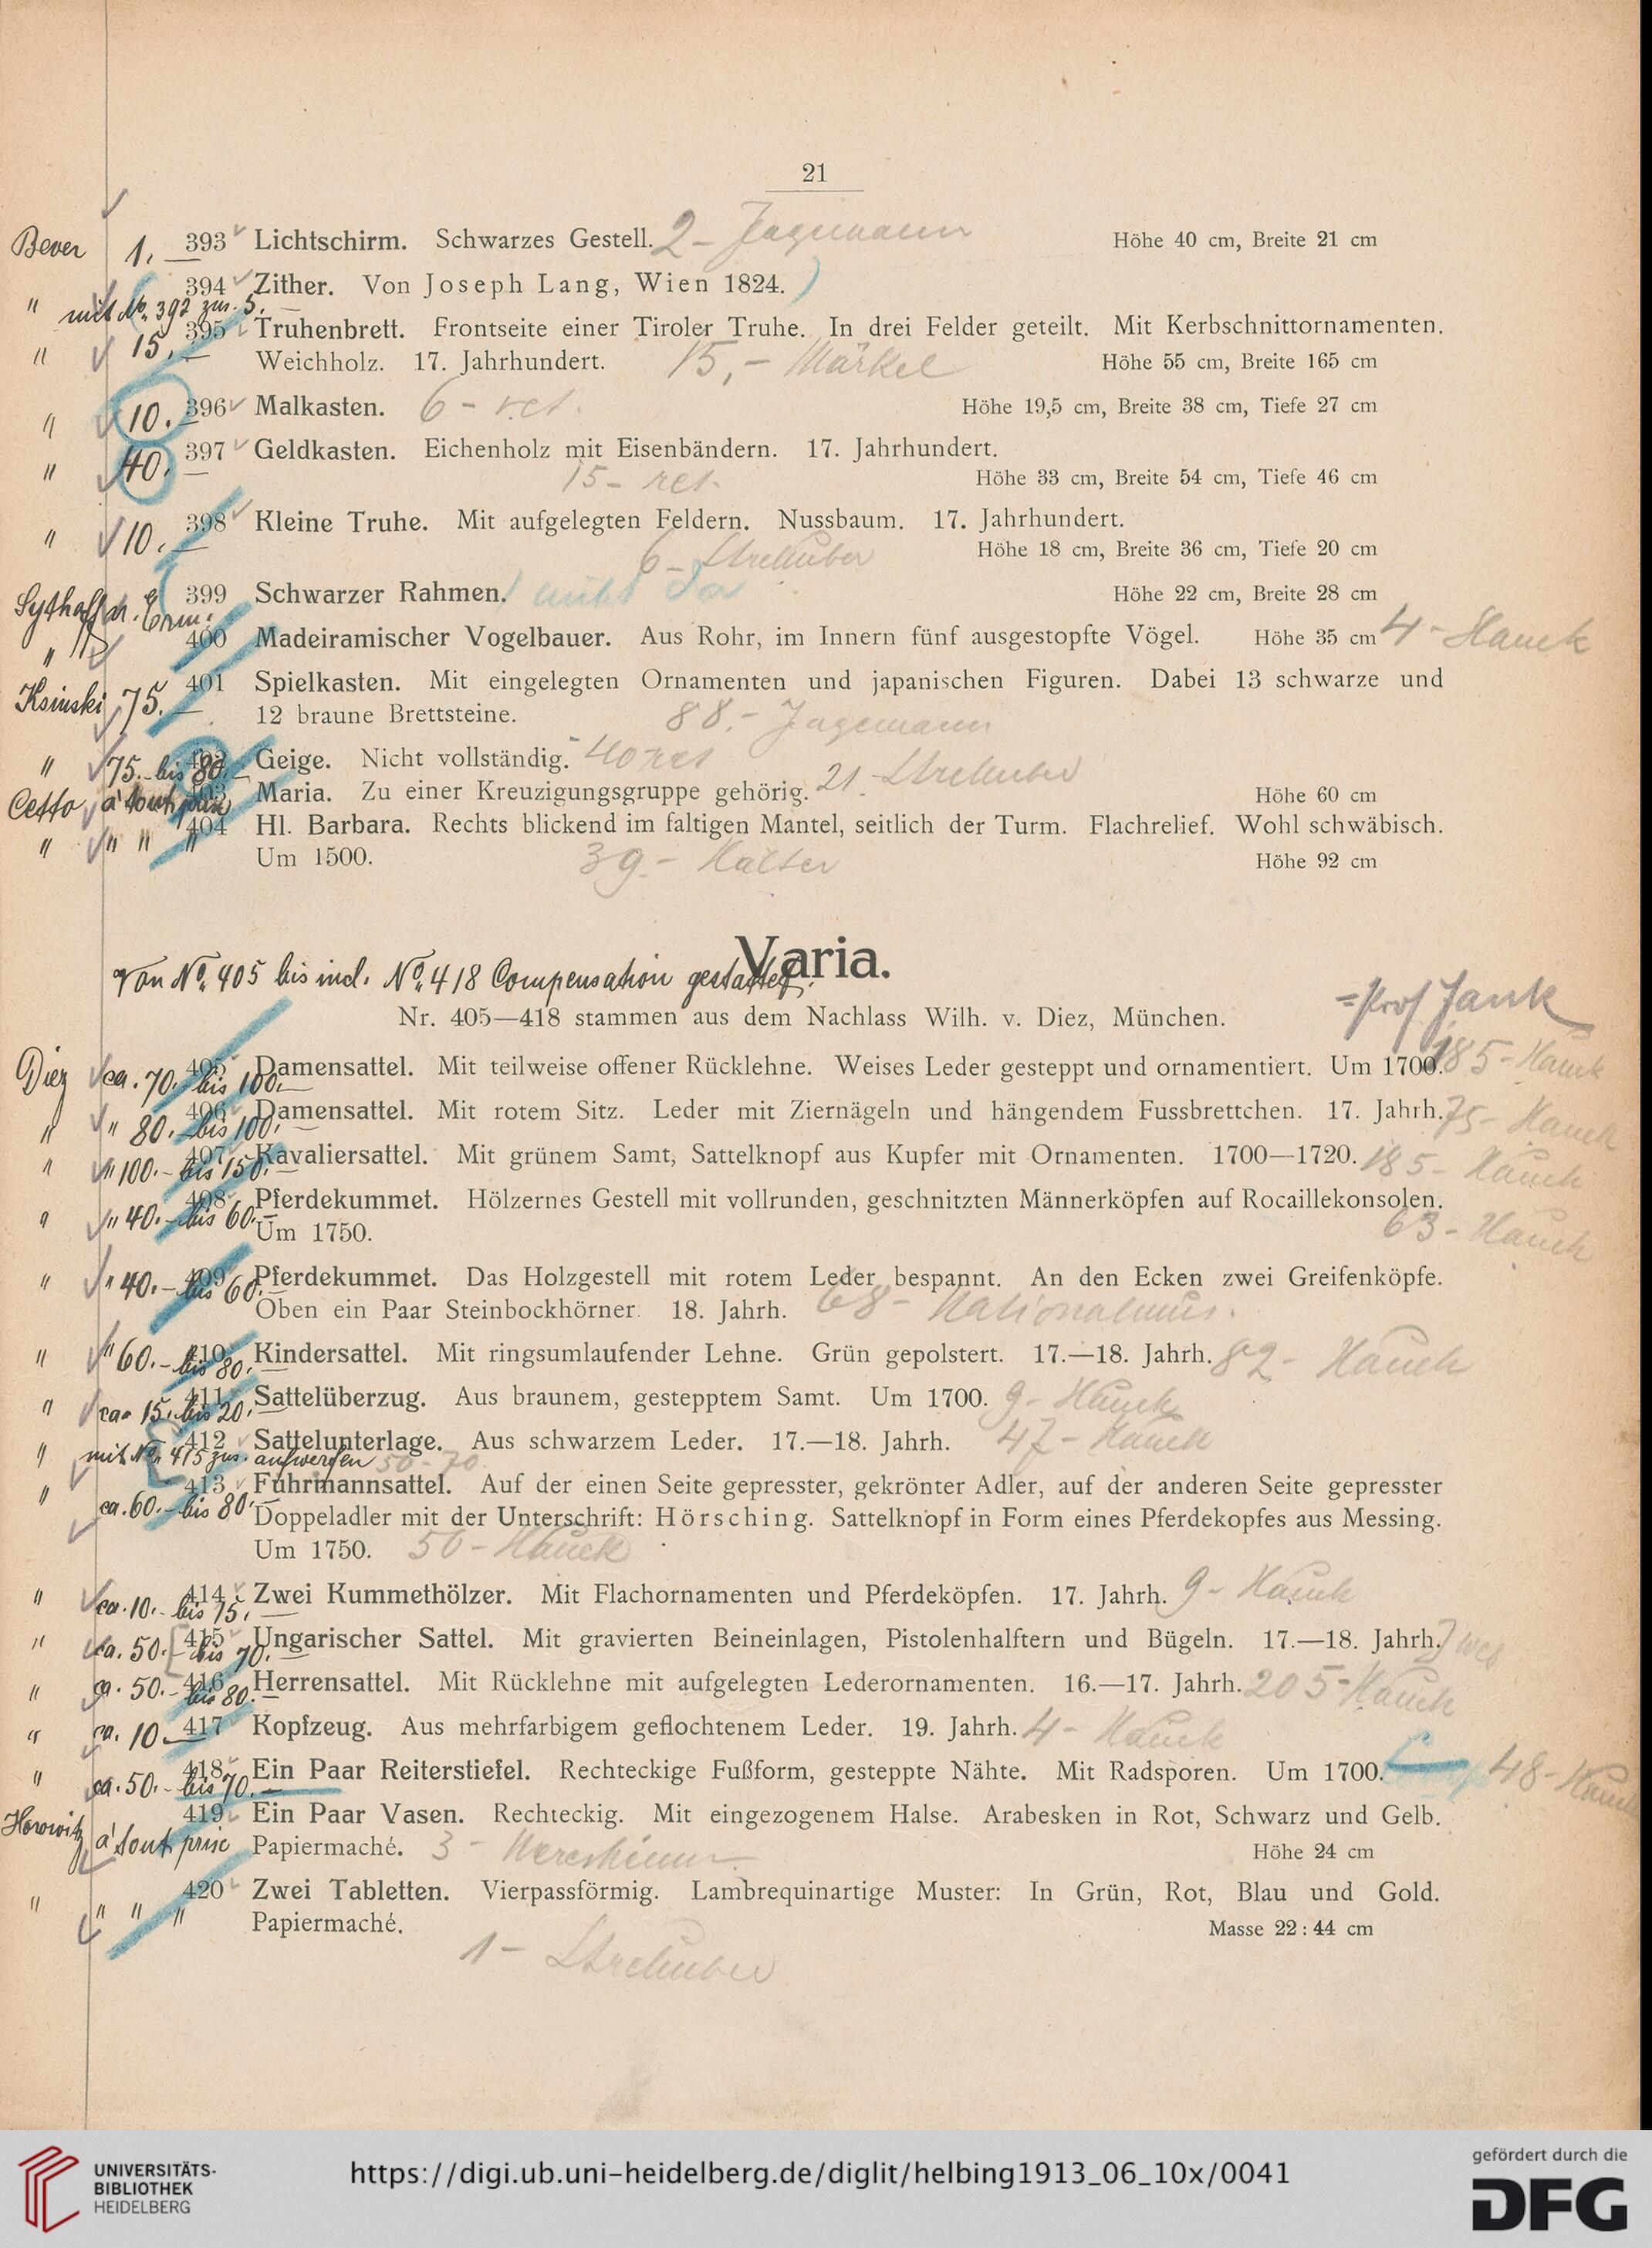 21
Bever 1.— 393 Lichtschirm. Schwarzes Gestell. 2 – Jagemann Höhe 40 cm, Breite 21 cm
394 Zither. Von Joseph Lang, Wien 1824.
" mit No. 392 zus. 5.—
395 Truhenbrett. Frontseite einer Tiroler Truhe. In drei Felder geteilt. Mit Kerbschnittornamenten.
" 15.— Weichholz. 17. Jahrhundert. 15,– Märkel Höhe 55 cm, Breite 165 cm
" 10.— 396 Malkasten. 6 – ret. Höhe 19,5 cm, Breite 38 cm, Tiefe 27 cm
" 40.— 397 Geldkasten. Eichenholz mit Eisenbändern. 17. Jahrhundert.
15 – ret. Höhe 33 cm, Breite 54 cm, Tiefe 46 cm
" 10.— 398 Kleine Truhe. Mit aufgelegten Feldern. Nussbaum. 17. Jahrhundert.
6 – Strehuber Höhe 18 cm, Breite 36 cm, Tiefe 20 cm
399 Schwarzer Rahmen. nicht da Höhe 22 cm, Breite 28 cm
" 400 Madeiramischer Vogelbauer. Aus Rohr, im Innern fünf ausgestopfte Vögel. Höhe 35 cm 4 – Hauck
Ksinski 75.— 401 Spielkasten. Mit eingelegten Ornamenten und japanischen Figuren. Dabei 13 schwarze und
12 braune Brettsteine. 88.– Jagemann
" 75.– bis 80.— 402 Geige. Nicht vollständig. 40 – ret
Cetto à tout prix 403 Maria. Zu einer Kreuzigungsgruppe gehörig. 21 – Strehuber Höhe 60 cm
" " " " 404 Hl. Barbara. Rechts blickend im faltigen Mantel, seitlich der Turm. Flachrelief. Wohl schwäbisch.
Um 1500. 39.– Höhe 92 cm
Varia.
Von No. 405 bis incl. No. 418 Compensation gestattet.
Nr. 405—418 stammen aus dem Nachlass Wilh. v. Diez, München. = Prof Jank
Diez ca. 70.– bis 100.— 405 Damensattel. Mit teilweise offener Rücklehne. Weises Leder gesteppt und ornamentiert. Um 1700. 185 – Hauck
" " 80.– bis 100.— 406 Damensattel. Mit rotem Sitz. Leder mit Ziernägeln und hängendem Fussbrettchen. 17. Jahrh. 75 – Hauck
" " 100.– bis 150.— 407 Kavaliersattel. Mit grünem Samt, Sattelknopf aus Kupfer mit Ornamenten. 1700—1720. 185 – Hauck
" " 40.– bis 60.— 408 Pferdekummet. Hölzernes Gestell mit vollrunden, geschnitzten Männerköpfen auf Rocaillekonsolen.
Um 1750. 63 – Hauck
" " 40.– bis 60.— 409 Pferdekummet. Das Holzgestell mit rotem Leder bespannt. An den Ecken zwei Greifenköpfe.
Oben ein Paar Steinbockhörner. 18. Jahrh. 68 – Nationalmus.
" " 60.– bis 80.— 410 Kindersattel. Mit ringsumlaufender Lehne. Grün gepolstert. 17.—18. Jahrh. 82 – Hauck
" ca. 15.– bis 20.— 411 Sattelüberzug. Aus braunem, gestepptem Samt. Um 1700. 9 – Hauck
412 Sattelunterlage. Aus schwarzem Leder. 17.—18. Jahrh. 47 – Hauck
" mit No. 415 zus. aufwerfen 50 – 70
" ca. 60.– bis 80.— 413 Fuhrmannsattel. Auf der einen Seite gepresster, gekrönter Adler, auf der anderen Seite gepresster
Doppeladler mit der Unterschrift: Hörsching. Sattelknopf in Form eines Pferdekopfes aus Messing.
Um 1750. 50 – Hauck
" ca. 10.– bis 15.— 414 Zwei Kummethölzer. Mit Flachornamenten und Pferdeköpfen. 17. Jahrh. 9 – Hauck
" ca. 50.– bis 70.— 415 Ungarischer Sattel. Mit gravierten Beineinlagen, Pistolenhalftern und Bügeln. 17.—18. Jahrh.
" ca. 50.– bis 80.— 416 Herrensattel. Mit Rücklehne mit aufgelegten Lederornamenten. 16.—17. Jahrh. 205 – Hauck
" ca. 10.— 417 Kopfzeug. Aus mehrfarbigem geflochtenem Leder. 19. Jahrh. 4 – Hauck
" ca. 50.– bis 70.— 418 Ein Paar Reiterstiefel. Rechteckige Fußform, gesteppte Nähte. Mit Radsporen. Um 1700. 48 – Hauck
Horowitz à tout prix 419 Ein Paar Vasen. Rechteckig. Mit eingezogenem Halse. Arabesken in Rot, Schwarz und Gelb.
Papiermaché. 3 – Höhe 24 cm
" " " " 420 Zwei Tabletten. Vierpassförmig. Lambrequinartige Muster: In Grün, Rot, Blau und Gold.
Papiermaché. Masse 22 : 44 cm
1 – Strehuber
UNIVERSITÄTS-
BIBLIOTHEK
HEIDELBERG
https://digi.ub.uni-heidelberg.de/diglit/helbing1913_06_10x/0041
gefördert durch die
DFG